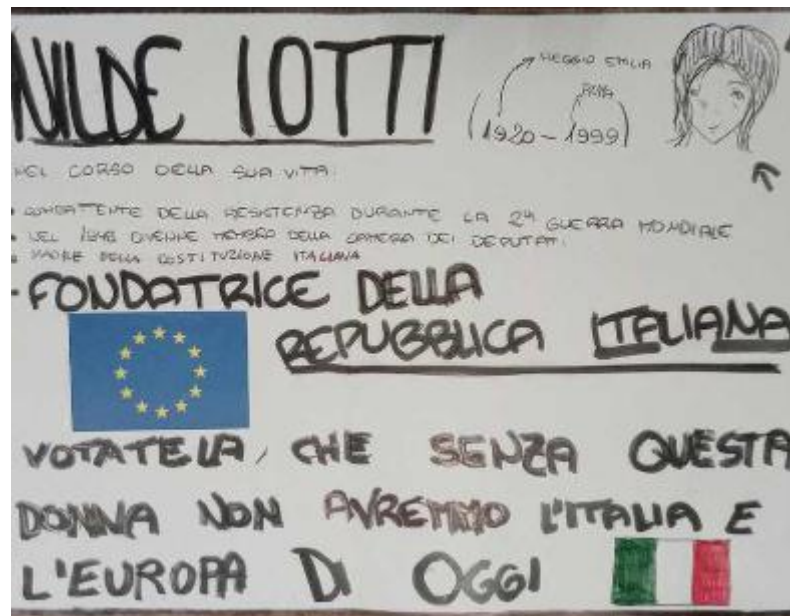 NILDE IOTTI
REGGIO EMILIA
ROMA
(1920 - 1999)
NEL CORSO DELLA SUA VITA:
• COMBATTENTE DELLA RESISTENZA DURANTE LA 2ª GUERRA MONDIALE
• NEL 1948 DIVENNE MEMBRO DELLA CAMERA DEI DEPUTATI
• MADRE DELLA COSTITUZIONE ITALIANA
- FONDATRICE DELLA
REPUBBLICA ITALIANA
VOTATELA, CHE SENZA QUESTA
DONNA NON AVREMMO L'ITALIA E
L'EUROPA DI OGGI